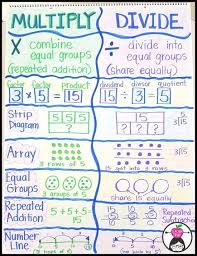 MULTIPLY DIVIDE
X combine equal groups (repeated addition)
÷ divide into equal groups (share equally)
factor factor product
3 × 5 = 15
dividend divisor quotient
15 ÷ 3 = 5
Strip Diagram
5 5 5
15
15
? ? ?
Array
3 rows of 5
15 split into 3 rows
Equal Groups
3 groups of 5
share 15 equally
Repeated Addition
5+5+5=
15
Repeated Subtraction
Number Line
3 jumps of 5